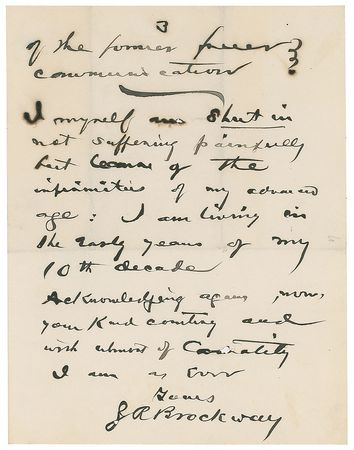 3
of the former
communication
I myself am Shut in
not suffering painfully
but because of the
infirmities of my advanced
age: I am living in
the early years of my
10th decade
Acknowledging again, now,
your kind courtesy and
with utmost of Cordiality
I am as ever
Yours
Z R Brockway